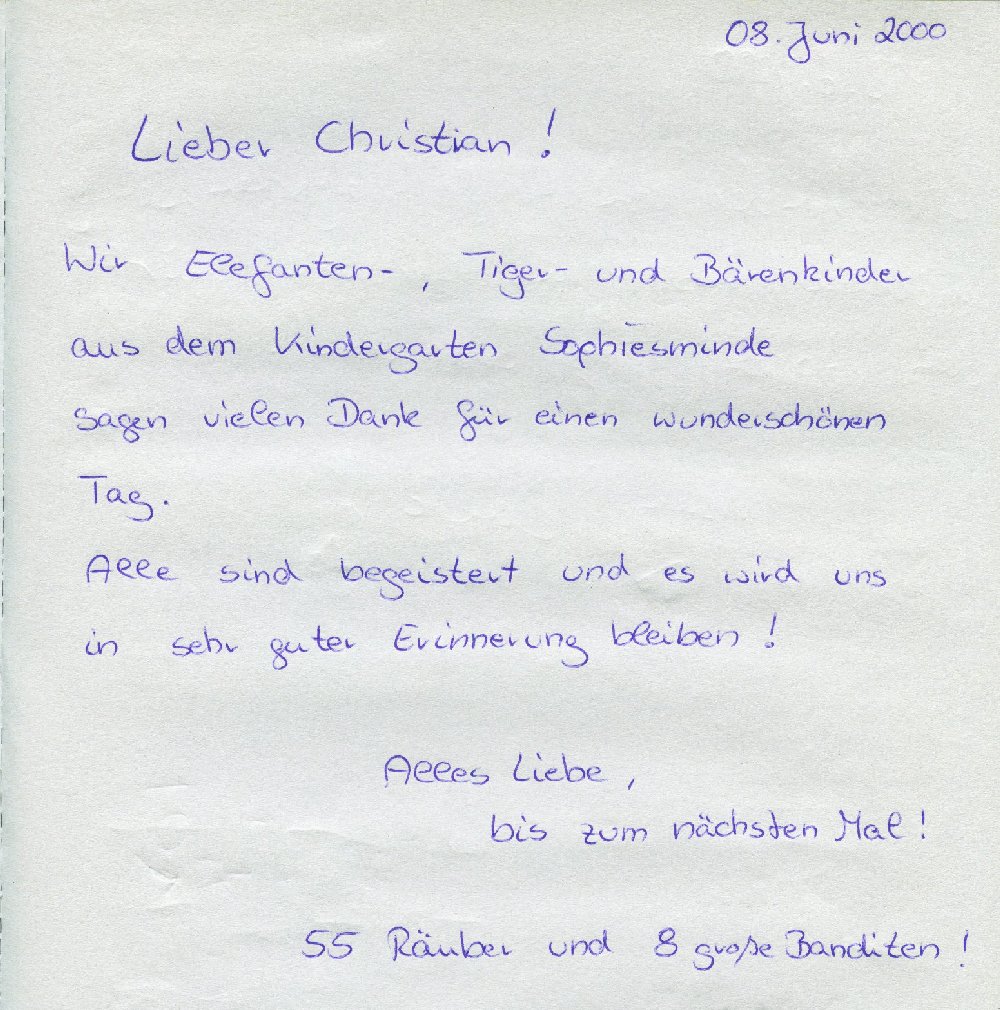 08. Juni 2000
Lieber Christian!
Wir Elefanten-, Tiger- und Bärenkinder
aus dem Kindergarten Sophiesminde
sagen vielen Dank für einen wunderschönen
Tag.
Alle sind begeistert und es wird uns
in sehr guter Erinnerung bleiben!
Alles Liebe,
bis zum nächsten Mal!
55 Räuber und 8 große Banditen!